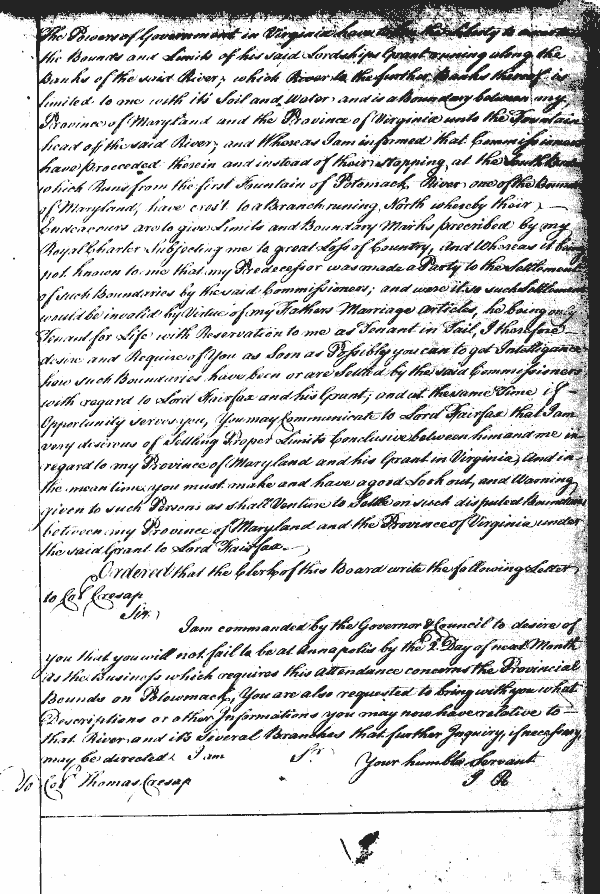 The Powers of Government in Virginia have taken the Liberty to ascertain
the Bounds and Limits of his said Lordships Grant runing along the
Banks of the said River; which River to the further Banks thereof is
limited to me with its Soil and Water and is a Boundary between my
Province of Maryland and the Province of Virginia unto the Fountain
head of the said River; and Whereas I am informed that Commissioners
have proceeded therein and instead of their stopping at the South
which Runs from the first Fountain of Potomack River, one of the Bounds
of Maryland, have cros't to a Branch runing North whereby their
Endeavours are to give Limits and Boundary Marks prescribed by my
Royal Charter Subjecting me to great Loss of Country, and Whereas it being
not known to me that my Predecessor was made a Party to the Settlement
of such Boundaries by the said Commissioners; and were it so such Settlement
would be invalid by Virtue of my Fathers Marriage Articles, he being only
Tenant for Life with Reservation to me as Tenant in Tail, I therefore
desire and Require of You as Soon as Possibly you can to get Intelligence
how such Boundaries have been or are Settled by the said Commissioners
with regard to Lord Fairfax and his Grant; and at the same Time if
Opportunity serves you, You may Communicate to Lord Fairfax that I am
very desirous of Settling Proper Limits Conclusive between him and me in
regard to my Province of Maryland and his Grant in Virginia, And in
the mean time, you must make and have a good Look out, and Warning
given to such Persons as shall Venture to Settle on such disputed Boundaries
between my Province of Maryland and the Province of Virginia under
the said Grant to Lord Fairfax
Ordered that the Clerk of this Board write the following Letter
to Col. Cresap
Sir
I am commanded by the Governor & Council to desire of
you that you will not fail to be at Annapolis by the 2d Day of next Month
as the Business which requires this Attendance concerns the Provincial
Bounds on Potowmack, You are also requested to bring with you what
Descriptions or other Informations you may now have relative to
that River and its Several Branches that further Inquiry, if necessary
may be directed. I am Sr.
Your humble Servant
To Col. Thomas Cresap J R